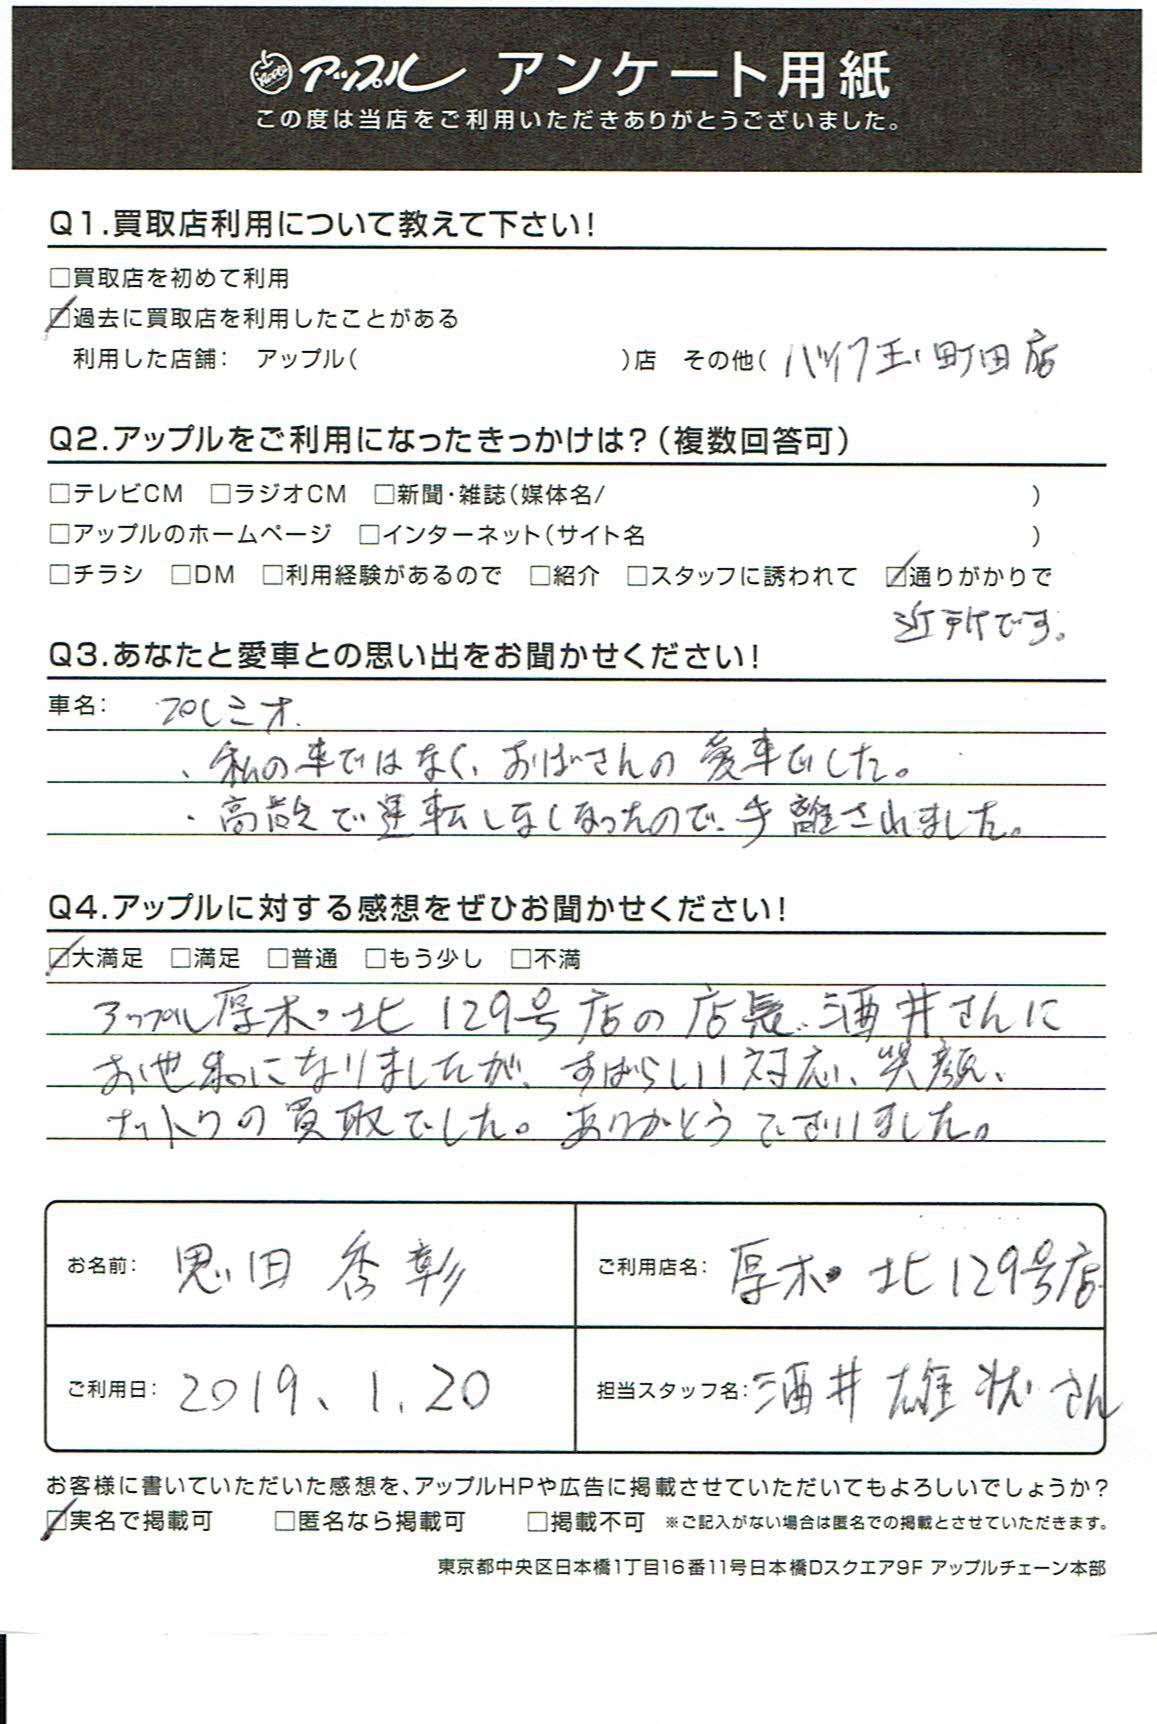 アップル アンケート用紙
この度は当店をご利用いただきありがとうございました。
Q1.買取店利用について教えて下さい!
□買取店を初めて利用
☑過去に買取店を利用したことがある
利用した店舗: アップル( )店 その他( バイク王 町田店
Q2.アップルをご利用になったきっかけは?(複数回答可)
□テレビCM □ラジオCM □新聞・雑誌(媒体名/ )
□アップルのホームページ □インターネット(サイト名 )
□チラシ □DM □利用経験があるので □紹介 □スタッフに誘われて ☑通りがかりで
近所です。
Q3.あなたと愛車との思い出をお聞かせください!
車名: プレミオ
・私の車ではなく、おばさんの愛車でした。
・高齢で運転しなくなったので、手離されました。
Q4.アップルに対する感想をぜひお聞かせください!
☑大満足 □満足 □普通 □もう少し □不満
アップル厚木・北129号店の店長 酒井さんに
お世話になりましたが、すばらしい対応、笑顔、
ナットクの買取でした。ありがとうございました。
お名前: 恩田 秀彰
ご利用店名: 厚木・北129号店
ご利用日: 2019、1、20
担当スタッフ名: 酒井 雄 さん
お客様に書いていただいた感想を、アップルHPや広告に掲載させていただいてもよろしいでしょうか?
☑実名で掲載可 □匿名なら掲載可 □掲載不可 ※ご記入がない場合は匿名での掲載とさせていただきます。
東京都中央区日本橋1丁目16番11号日本橋Dスクエア9F アップルチェーン本部